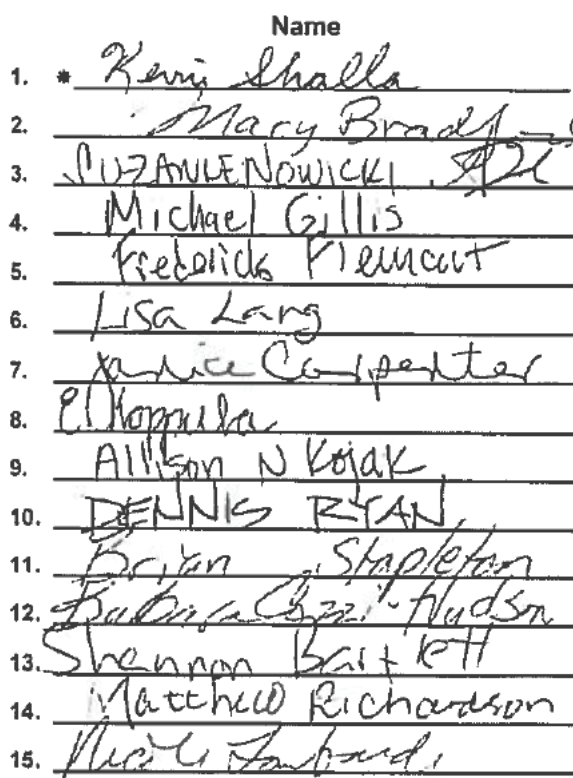 Name
1. * Kevin Shalla
2. Mary Bradf
3. SUZANNE NOWICKI
4. Michael Gillis
5. Frederick
6. Lisa Lang
7. Janice Carpenter
8.
9. Allison N Kojak
10. DENNIS RYAN
11. Brian Stapleton
12. Barbara Cozzi-Hudson
13. Shannon Bartlett
14. Matthew Richardson
15. Nicole Lombardi